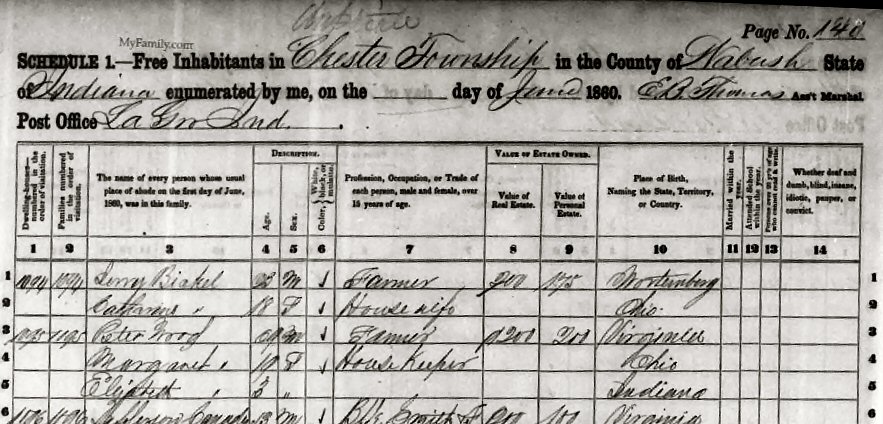 Page No. 140
MyFamily.com
SCHEDULE 1.—Free Inhabitants in Chester Township in the County of Wabash State
of Indiana enumerated by me, on the day of June 1860. E. B. Thomas Ass't Marshal
Post Office La Gro Ind.
DESCRIPTION. VALUE OF ESTATE OWNED.
Dwelling-houses numbered in the order of visitation. Families numbered in the order of visitation. The name of every person whose usual place of abode on the first day of June, 1860, was in this family. Age. Sex. Color, White, black, or mulatto. Profession, Occupation, or Trade of each person, male and female, over 15 years of age. Value of Real Estate. Value of Personal Estate. Place of Birth, Naming the State, Territory, or Country. Married within the year. Attended School within the year. Persons over 20 y'rs of age who cannot read & write. Whether deaf and dumb, blind, insane, idiotic, pauper, or convict.
1 2 3 4 5 6 7 8 9 10 11 12 13 14
1 1094 1094 M Farmer 900 175 Wortemberg 1
2 Catharine " 18 F House wife Ohio 2
3 1095 1095 Peter M Farmer 1200 200 Virginia 3
4 Margaret " F House Keeper Ohio 4
5 " 3 " Indiana 5
6 1096 1096 M Smith 100 Virginia 6